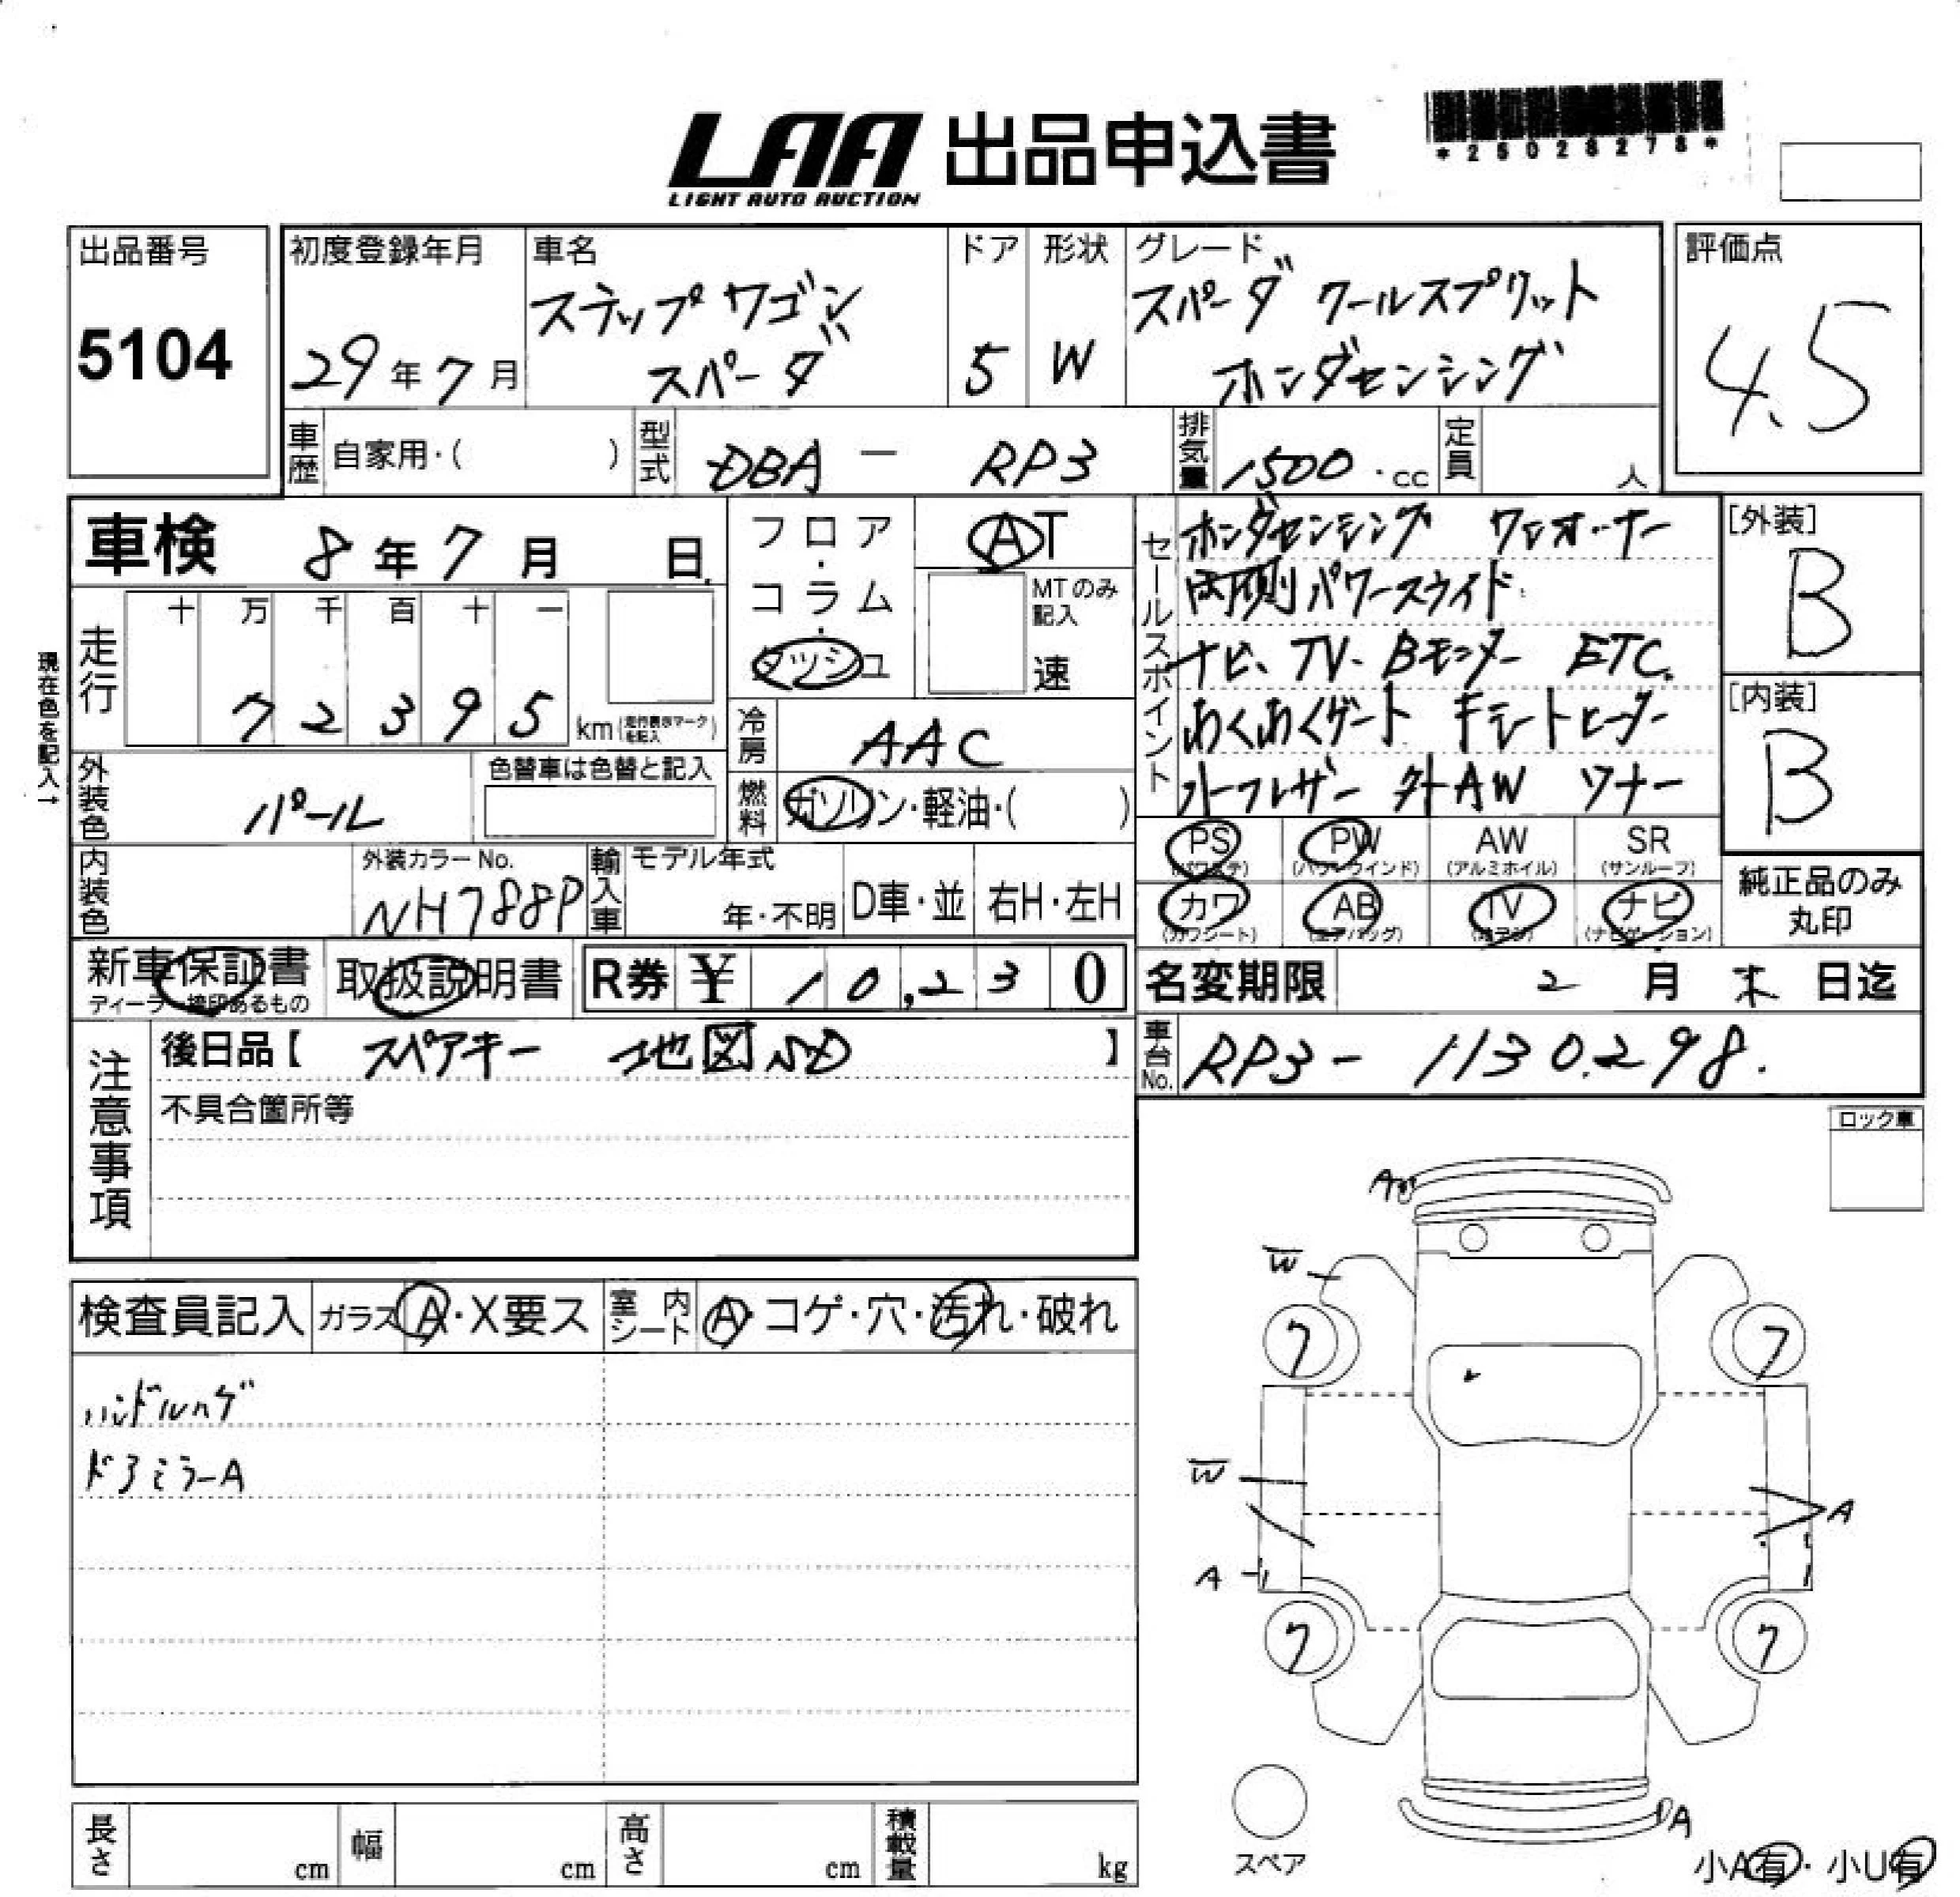 LAA 出品申込書
LIGHT AUTO AUCTION
*25028278*
出品番号
5104
初度登録年月
29年7月
車名
ステップワゴン
スパーダ
ドア
5
形状
W
グレード
スパーダ クールスプリット
ホンダセンシング
評価点
4.5
車歴 自家用・( )
型式 DBA - RP3
排気量 1500.cc
定員 人
車検 8年7月 日
フロア・コラム・ダッシュ
AT
MTのみ記入
速
走行
十 万 千 百 十 一
7 2 3 9 5 km(走行表示マークを記入)
現在色を記入→
外装色 パール
色替車は色替と記入
冷房 AAC
燃料 ガソリン・軽油・( )
内装色
外装カラーNo.
NH788P
輸入車 モデル年式
年・不明 D車・並 右H・左H
セールスポイント
ホンダセンシング ワンオーナー
両側パワースライド
ナビ、TV、Bモニター ETC.
わくわくゲート シートヒーター
ハーフレザー 外AW ツナー
[外装]
B
[内装]
B
PS PW AW SR
(パワステ) (パワーウインド) (アルミホイル) (サンルーフ)
カワ AB TV ナビ
(カワシート) (エアバッグ) (ナビゲーション)
純正品のみ
丸印
新車保証書 取扱説明書 R券 ¥ 10,230
ディーラー捺印あるもの
名変期限 2月末日迄
車台No. RP3- 1130298.
注意事項
後日品【 スペアキー 地図SD 】
不具合箇所等
ロック車
検査員記入 ガラス A・X要ス 室内シート A・コゲ・穴・汚れ・破れ
ハンドルハゲ
ドアミラーA
A
W
7 7
W
A
A
7 7
A
スペア
小A有・小U有
長さ cm 幅 cm 高さ cm 積載量 kg